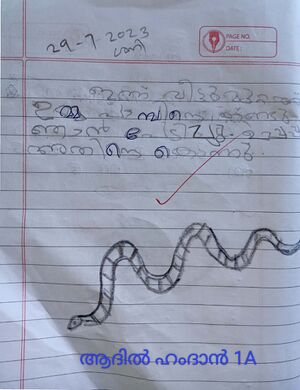 29-7-2023
ശനി
PAGE NO.
DATE:
ഇന്ന്
ഒരു പാമ്പിനെ കണ്ടു
ഞാൻ പേടിച്ചു
അതിനെ കൊന്നു
ആദിൽ ഹംദാൻ 1A